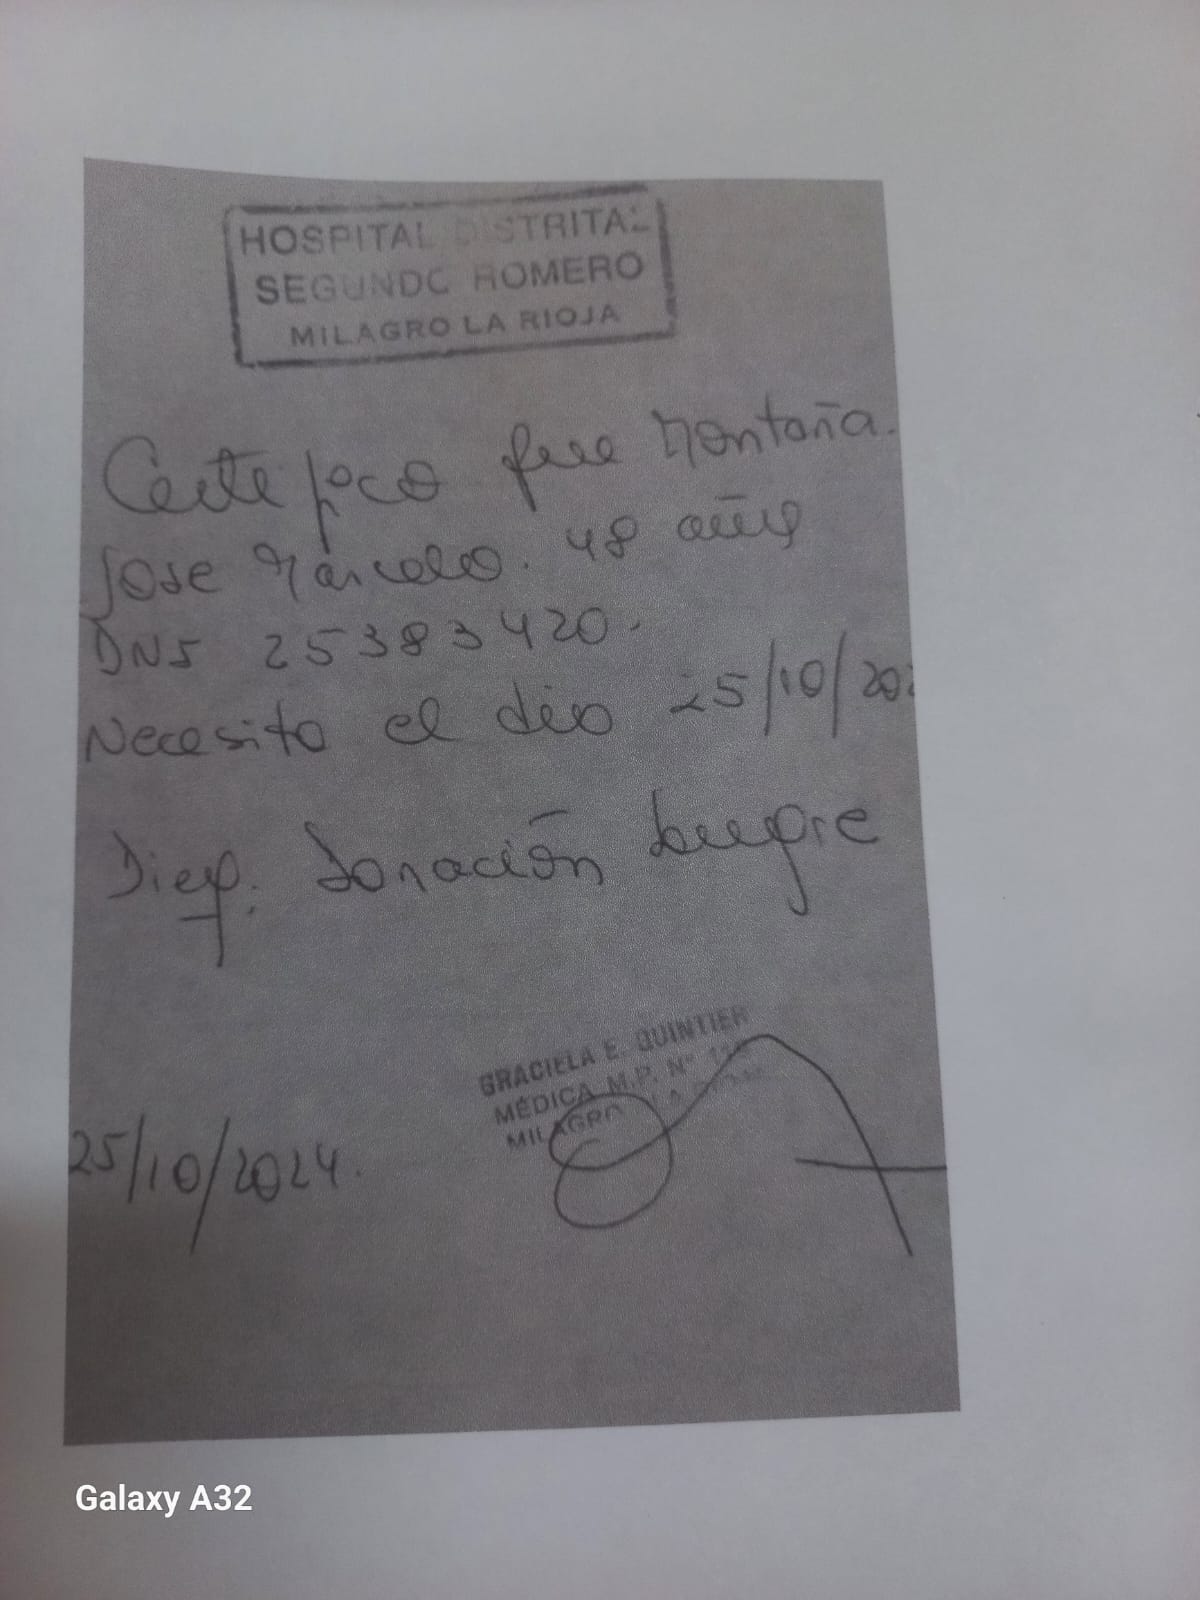 HOSPITAL DISTRITAL
SEGUNDO ROMERO
MILAGRO LA RIOJA
Certifico que Montaña
Jose Marcelo. 48 años
DNI 25383420.
Necesito el día 25/10/202
Diag: Donación Sangre
GRACIELA E. QUINTIER
MÉDICA M.P. N°
MILAGRO LA RIOJA
25/10/2024.
Galaxy A32